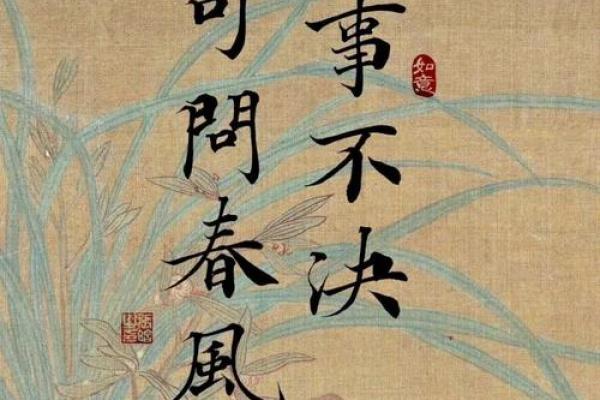 事不決
可問春風
如意